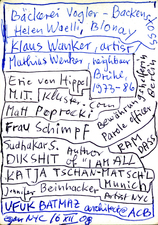 Bäckerei Vogler - Backens
Helen Waelli, Blonay
Klaus Wanker, artist
Mathias Wenker, neighbour
Brühe, 1973-86
Eric von Hippel
M.I.T.
Kluster.com
Matt Poprocki
Frau Schimpf
Bewährung
Parole officer
Sudhakar S.
DIKSHIT
Author of "I AM ALL
RAM DASS
KATJA TSCHAN-MATSCHL
Munich
Jennifer Beinhacker
Artist NYC
UFUK BATMAZ architect@ACB
NYC 10 XII 08